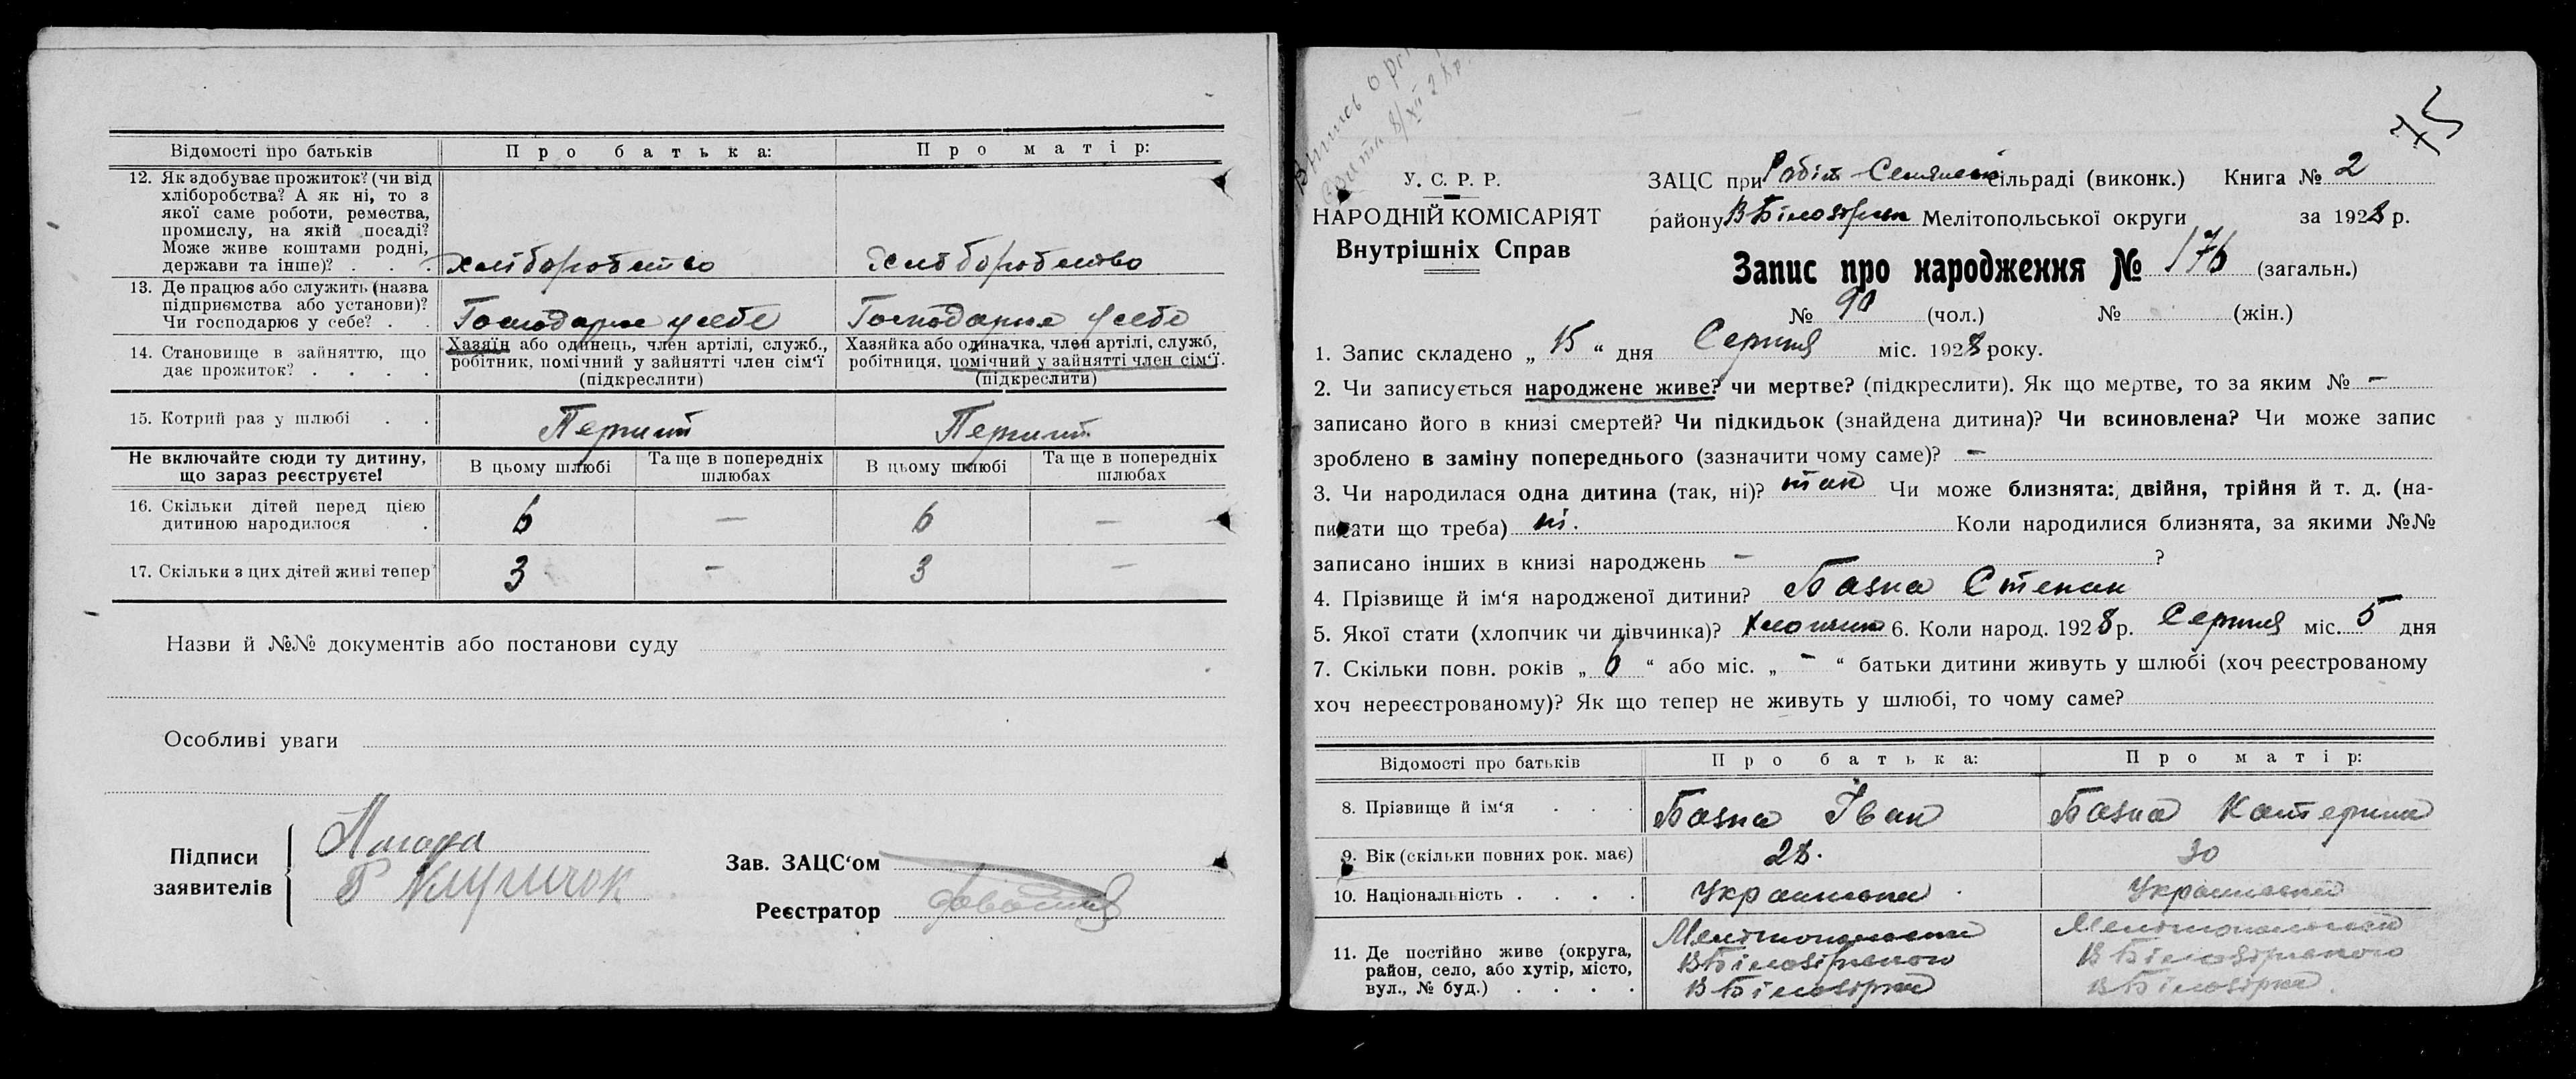 Відомості про батьків
Про батька:
Про матір:
12. Як здобуває прожиток? (чи від
хліборобства? А як ні, то з
якої саме роботи, ремества,
промислу, на якій посаді?
Може живе коштами родні,
держави та інше)? . . .
хліборобство
хліборобство
13. Де працює або служить (назва
підприємства або установи)?
Чи господарює у себе? . .
Господарює у себе
Господарює у себе
14. Становище в зайняттю, що
дає прожиток? . . . .
Хазяїн або одинець, член артілі, служб.,
робітник, помічний у зайнятті член сім'ї
(підкреслити)
Хазяйка або одиначка, член артілі, служб,
робітниця, помічний у зайнятті член сім'ї.
(підкреслити)
15. Котрий раз у шлюбі . .
Перший
Перший
Не включайте сюди ту дитину,
що зараз реєструєте!
В цьому шлюбі
Та ще в попередніх
шлюбах
В цьому шлюбі
Та ще в попередніх
шлюбах
16. Скільки дітей перед цією
дитиною народилося .
6 — 6 —
17. Скільки з цих дітей живі тепер
3 — 3 —
Назви й №№ документів або постанови суду
Особливі уваги
Підписи
заявителів
Зав. ЗАЦС'ом
Реєстратор
75
У. С. Р. Р.
НАРОДНІЙ КОМІСАРІЯТ
Внутрішніх Справ
ЗАЦС при сільраді (виконк.) Книга № 2
району В Білозірськ Мелітопольської округи за 1928 р.
Запис про народження № 176 (загальн.)
№ 90 (чол.) № (жін.)
1. Запис складено „ 15 “ дня Серпня міс. 1928 року.
2. Чи записується народжене живе? чи мертве? (підкреслити). Як що мертве, то за яким № —
записано його в книзі смертей? Чи підкидьок (знайдена дитина)? Чи всиновлена? Чи може запис
зроблено в заміну попереднього (зазначити чому саме)? —
3. Чи народилася одна дитина (так, ні)? так Чи може близнята: двійня, трійня й т. д. (на-
писати що треба) ні. Коли народилися близнята, за якими №№
записано інших в книзі народжень — ?
4. Прізвище й ім'я народженої дитини? Базна Степан
5. Якої стати (хлопчик чи дівчинка)? Хлопчик 6. Коли народ. 1928 р. Серпня міс. 5 дня
7. Скільки повн. років „ 6 “ або міс. „ — “ батьки дитини живуть у шлюбі (хоч реєстрованому
хоч нереєстрованому)? Як що тепер не живуть у шлюбі, то чому саме?
Відомості про батьків
Про батька:
Про матір:
8. Прізвище й ім'я . . .
Базна Іван
Базна Катерина
9. Вік (скільки повних рок. має)
28.
30
10. Національність . . . .
11. Де постійно живе (округа,
район, село, або хутір, місто,
вул., № буд.) . . . .